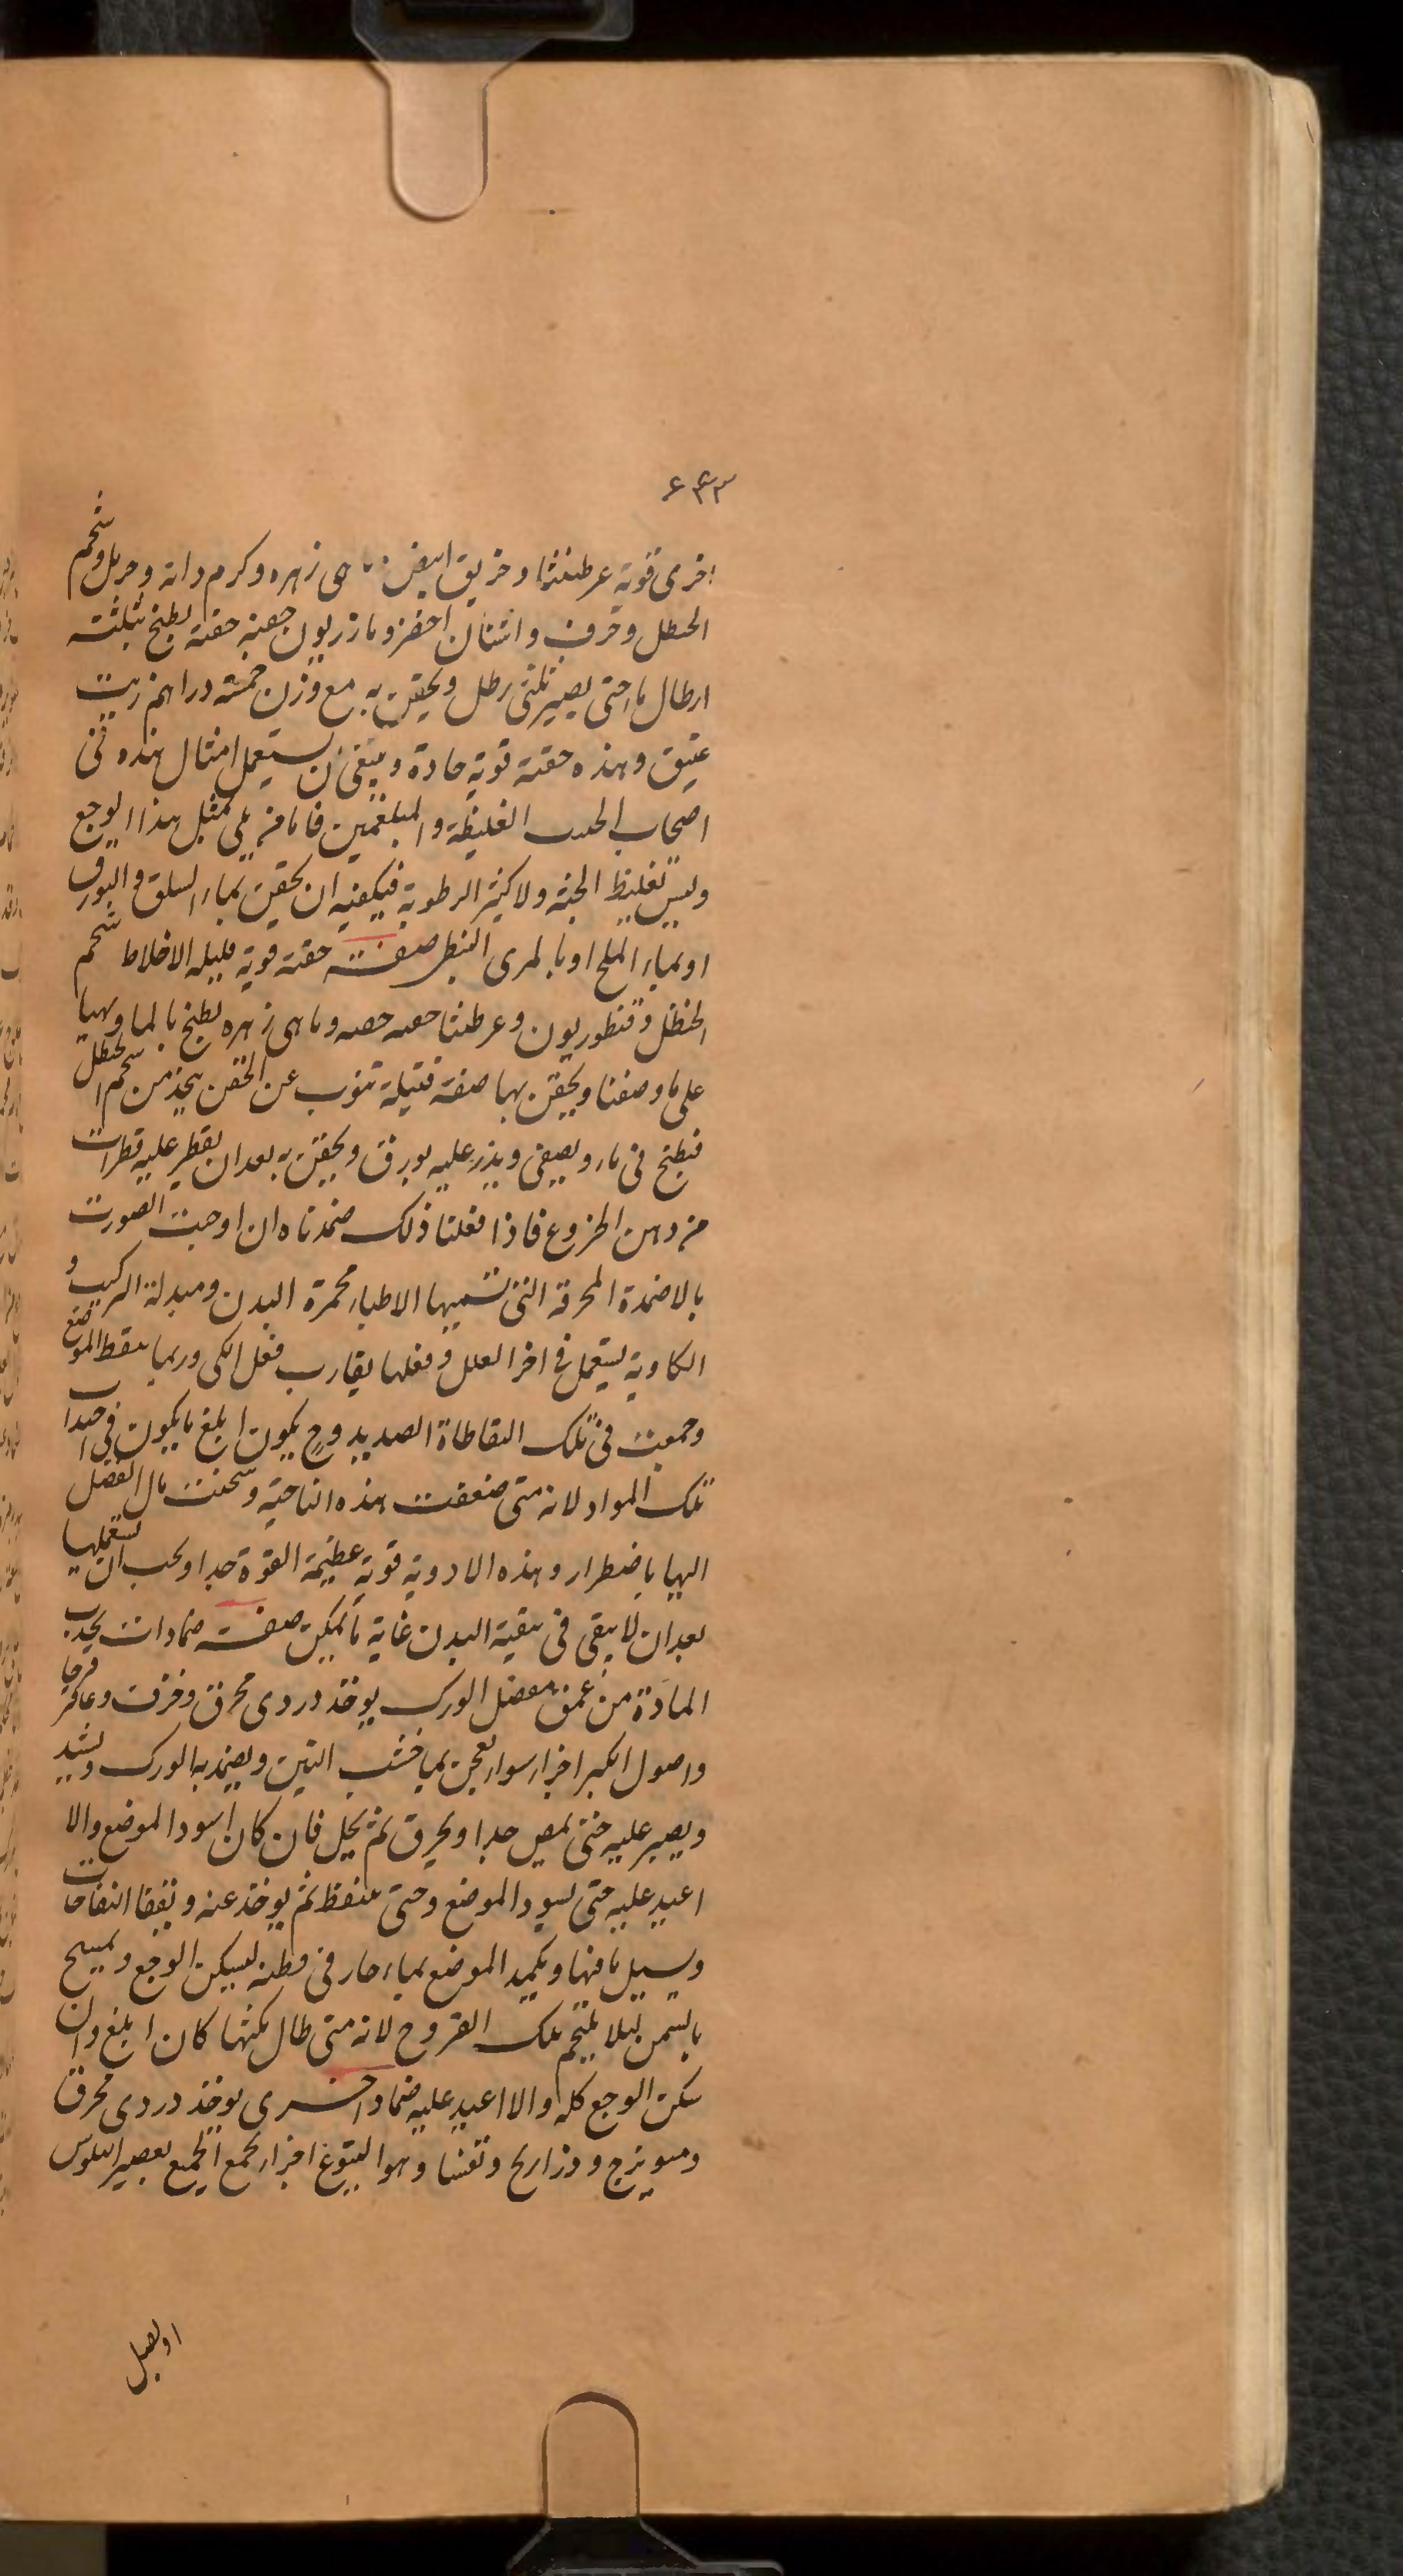 ۶۴۳
اخرى قوية عرطنيثا وخربق ابيض ماهى زهره وكرم دانه وحرمل وشحم
الحنظل وحرف واشنان اخضر ومازريون حفنه حفنه يطبخ بثلثة
ارطال ماء حتى يصير ثلثى رطل ويحقن به مع وزن خمسة دراهم زيت
عتيق وهذه حقنة قوية حادة وينبغى ان يستعمل امثال هذه فى
اصحاب الغليظة والمبلغمين فاما من بلى بمثل هذا الوجع
وليس بغليظ الجثة ولا كثير الرطوبة فيكفيه ان يحقن بماء السلق والبورق
او بماء الملح او بالمرى النبطى صفة حقنة قوية قليلة الاخلاط شحم
الحنظل وقنطوريون وعرطنيثا حفنه حفنه وماهى زهره يطبخ بالماء ويهيا
على ما وصفنا ويحقن بها صفة فتيلة تنوب عن الحقن يؤخذ من شحم الحنظل
فيطبخ فى ماء ويصفى ويذر عليه بورق ويحقن به بعد ان يقطر عليه قطرات
من دهن الخروع فاذا فعلنا ذلك ضمدناه ان اوجبت الصورت
بالاضمدة المحرقة التى تسميها الاطباء محمرة البدن ومبدلة التركيب و
الكاوية يستعمل فى اخر العلل وفعلها يقارب فعل الكى وربما ينفط الموضع
وجمعت فى تلك النفاطاة الصديد وح يكون ابلغ ما يكون فى اجتذاب
تلك المواد لانه متى ضعفت هذه الناحية وسخنت مال الفضل
اليها باضطرار وهذه الادوية قوية عظيمة القوة جدا ويجب ان يستعملها
بعد ان لا يبقى فى تنقية البدن غاية ما يمكن صفة ضمادات يجذب
المادة من عمق مفصل الورك يوخذ دردى محرق وحرف وعاقرقرحا
واصول الكبر اجزاء سواء يعجن بماء خشب التين ويضمد به الورك ويشد
ويصبر عليه حتى يمض جدا ويحرق ثم يحل فان كان اسود الموضع والا
اعيد عليه حتى يسود الموضع وحتى يتنفط ثم يوخذ عنه وتفقا النفاخات
ويسيل ما فيها ويكمد الموضع بماء حار فى قطنه ليسكن الوجع ويمسح
بالسمن ليلا يلتحم تلك القروح لانه متى طال مكثها كان ابلغ وان
سكن الوجع كله والا اعيد عليه ضماد اخرى يوخذ دردى محرق
وميويزج وذراريح وتفسيا وهو اليتوع اجزاء يجمع الجميع بعصير